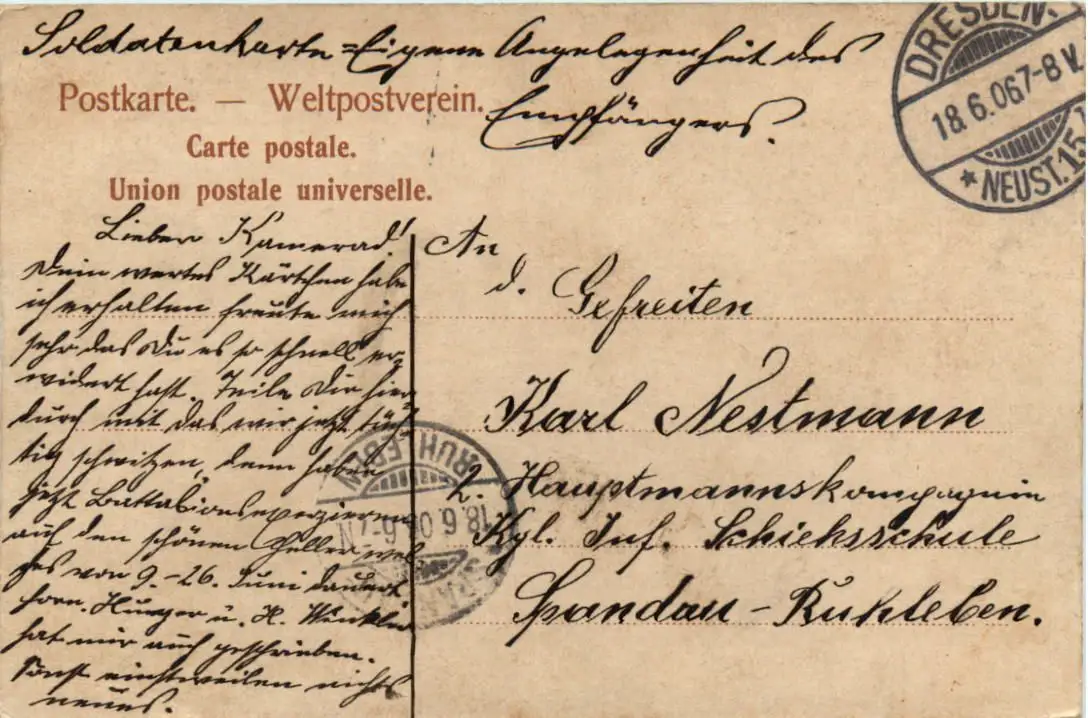 Soldatenkarte = Eigene Angelegenheit des
Empfängers.
Postkarte. — Weltpostverein.
Carte postale.
Union postale universelle.
DRESDEN-
18.6.06.7-8V.
* NEUST.15
Lieber Kamerad!
Dein wertes Kärtchen habe
ich erhalten freute mich
sehr das Du es so schnell er-
widert hast. Teile Dir hier
durch mit das wir jetzt tüch-
tig schwitzen, denn haben
jetzt Battalionsexerzieren
auf den schönen Heller wel-
ches von 9.-26. Juni dauert
Hunger u. H. Winkler
hat mir auch geschrieben.
Sonst einstweilen nichts
neues.
An
d. Gefreiten
Karl Nestmann
2. Hauptmannskompagnie
Kgl. Inf. Schiehsschule
Spandau - Ruhleben.
RUHLEBEN
18.6.06.6-7N